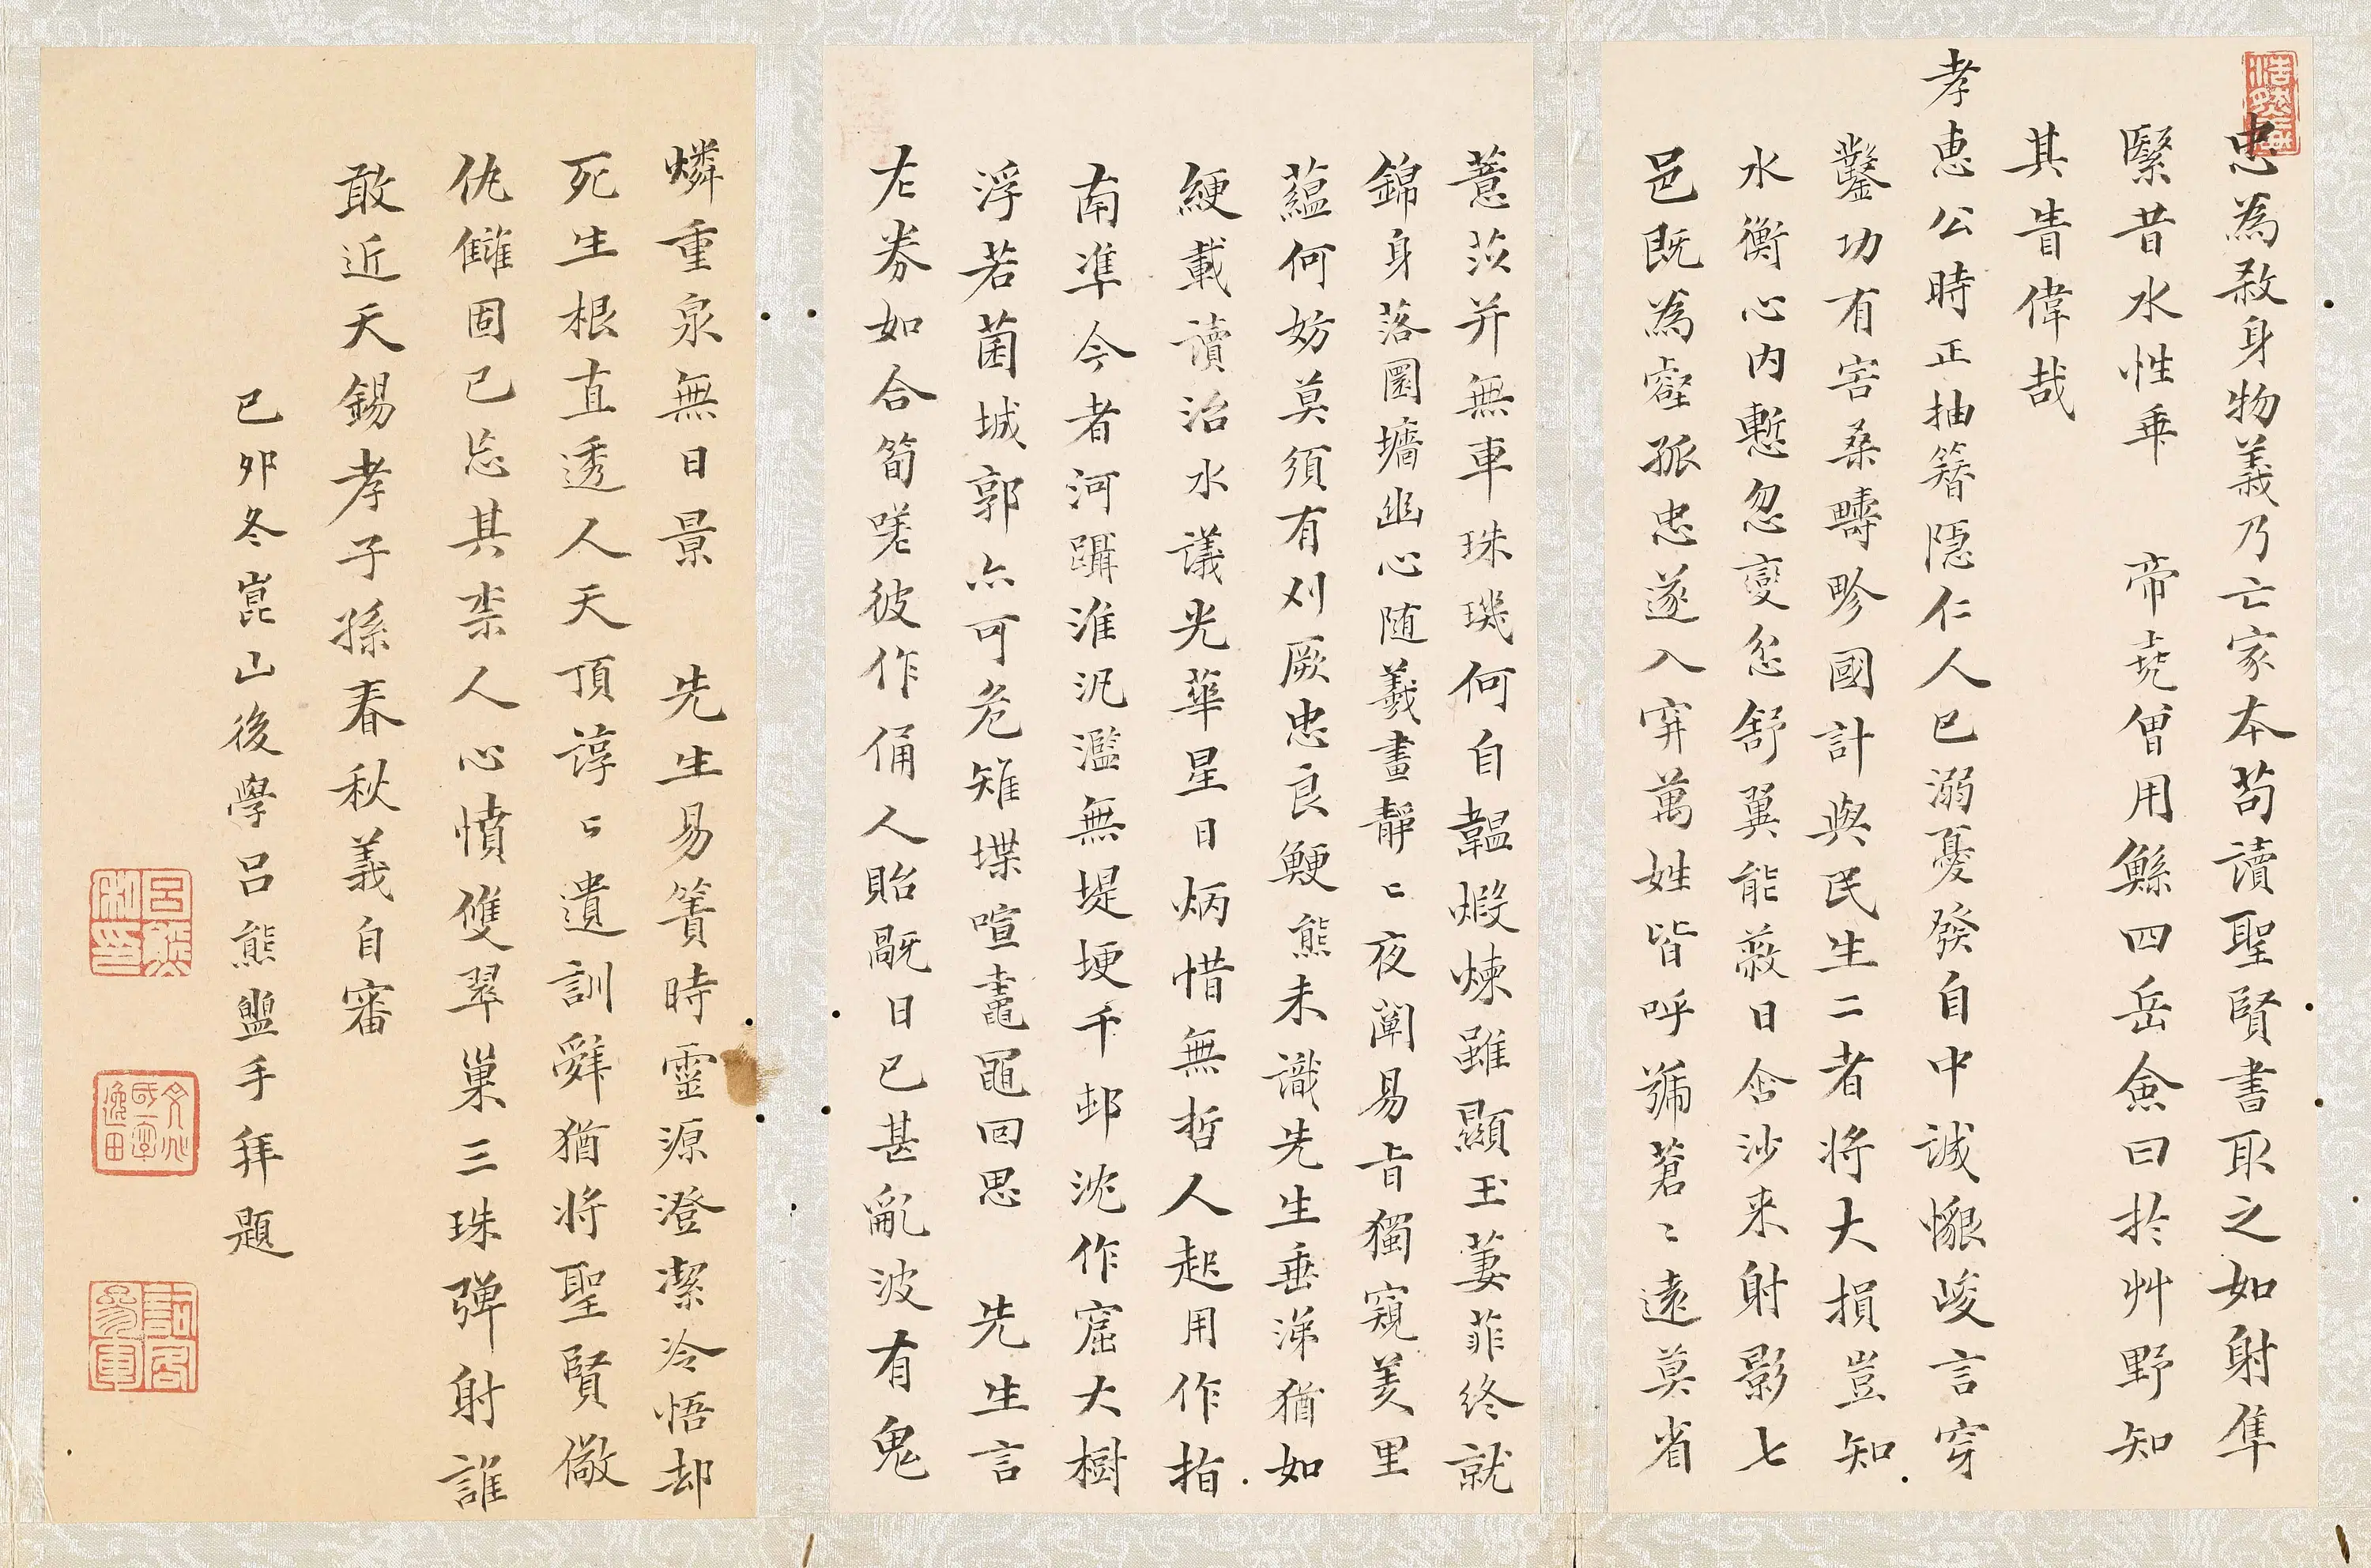 忠為殺身物義乃亡家本苟讀聖賢書取之如射隼
緊昔水性乖 帝堯僧用鯀四岳僉曰於艸野知
其眚偉哉
孝惠公時正抽簪隱仁人已溺憂發自中誠懇峻言穿
鑿功有害桑疇畛國計與民生二者將大損豈知
水衡心內慙忽變忿舒翼能蔽日含沙来射影七
邑既為壑孤忠遂入穽萬姓皆呼號蒼〻遠莫省
薏苡并無車珠璣何自韞煅煉雖顯玉萋菲终就
錦身落圜墻幽心随羲畫靜〻夜闡易旨獨窺羑里
蘊何妨莫須有刈厥忠良鯁熊未識先生垂涕猶如
綆載讀治水議光華星日炳惜無哲人起用作指
南準今者河躡淮汎濫無堤埂千邨沈作窟大樹
浮若菌城郭亦可危雉堞喧鼃黽回思 先生言
左券如合筍嗟彼作俑人貽毆日已甚亂波有鬼
燐重泉無日景 先生易簀時靈源澄潔冷悟却
死生根直透人天頂諄〻遺訓辭猶將聖賢儆
仇讎固已忘其柰人心憤雙翠巢三珠弹射誰
敢近天錫孝子孫春秋義自審
己卯冬崑山後學吕熊盥手拜題
吕熊私印